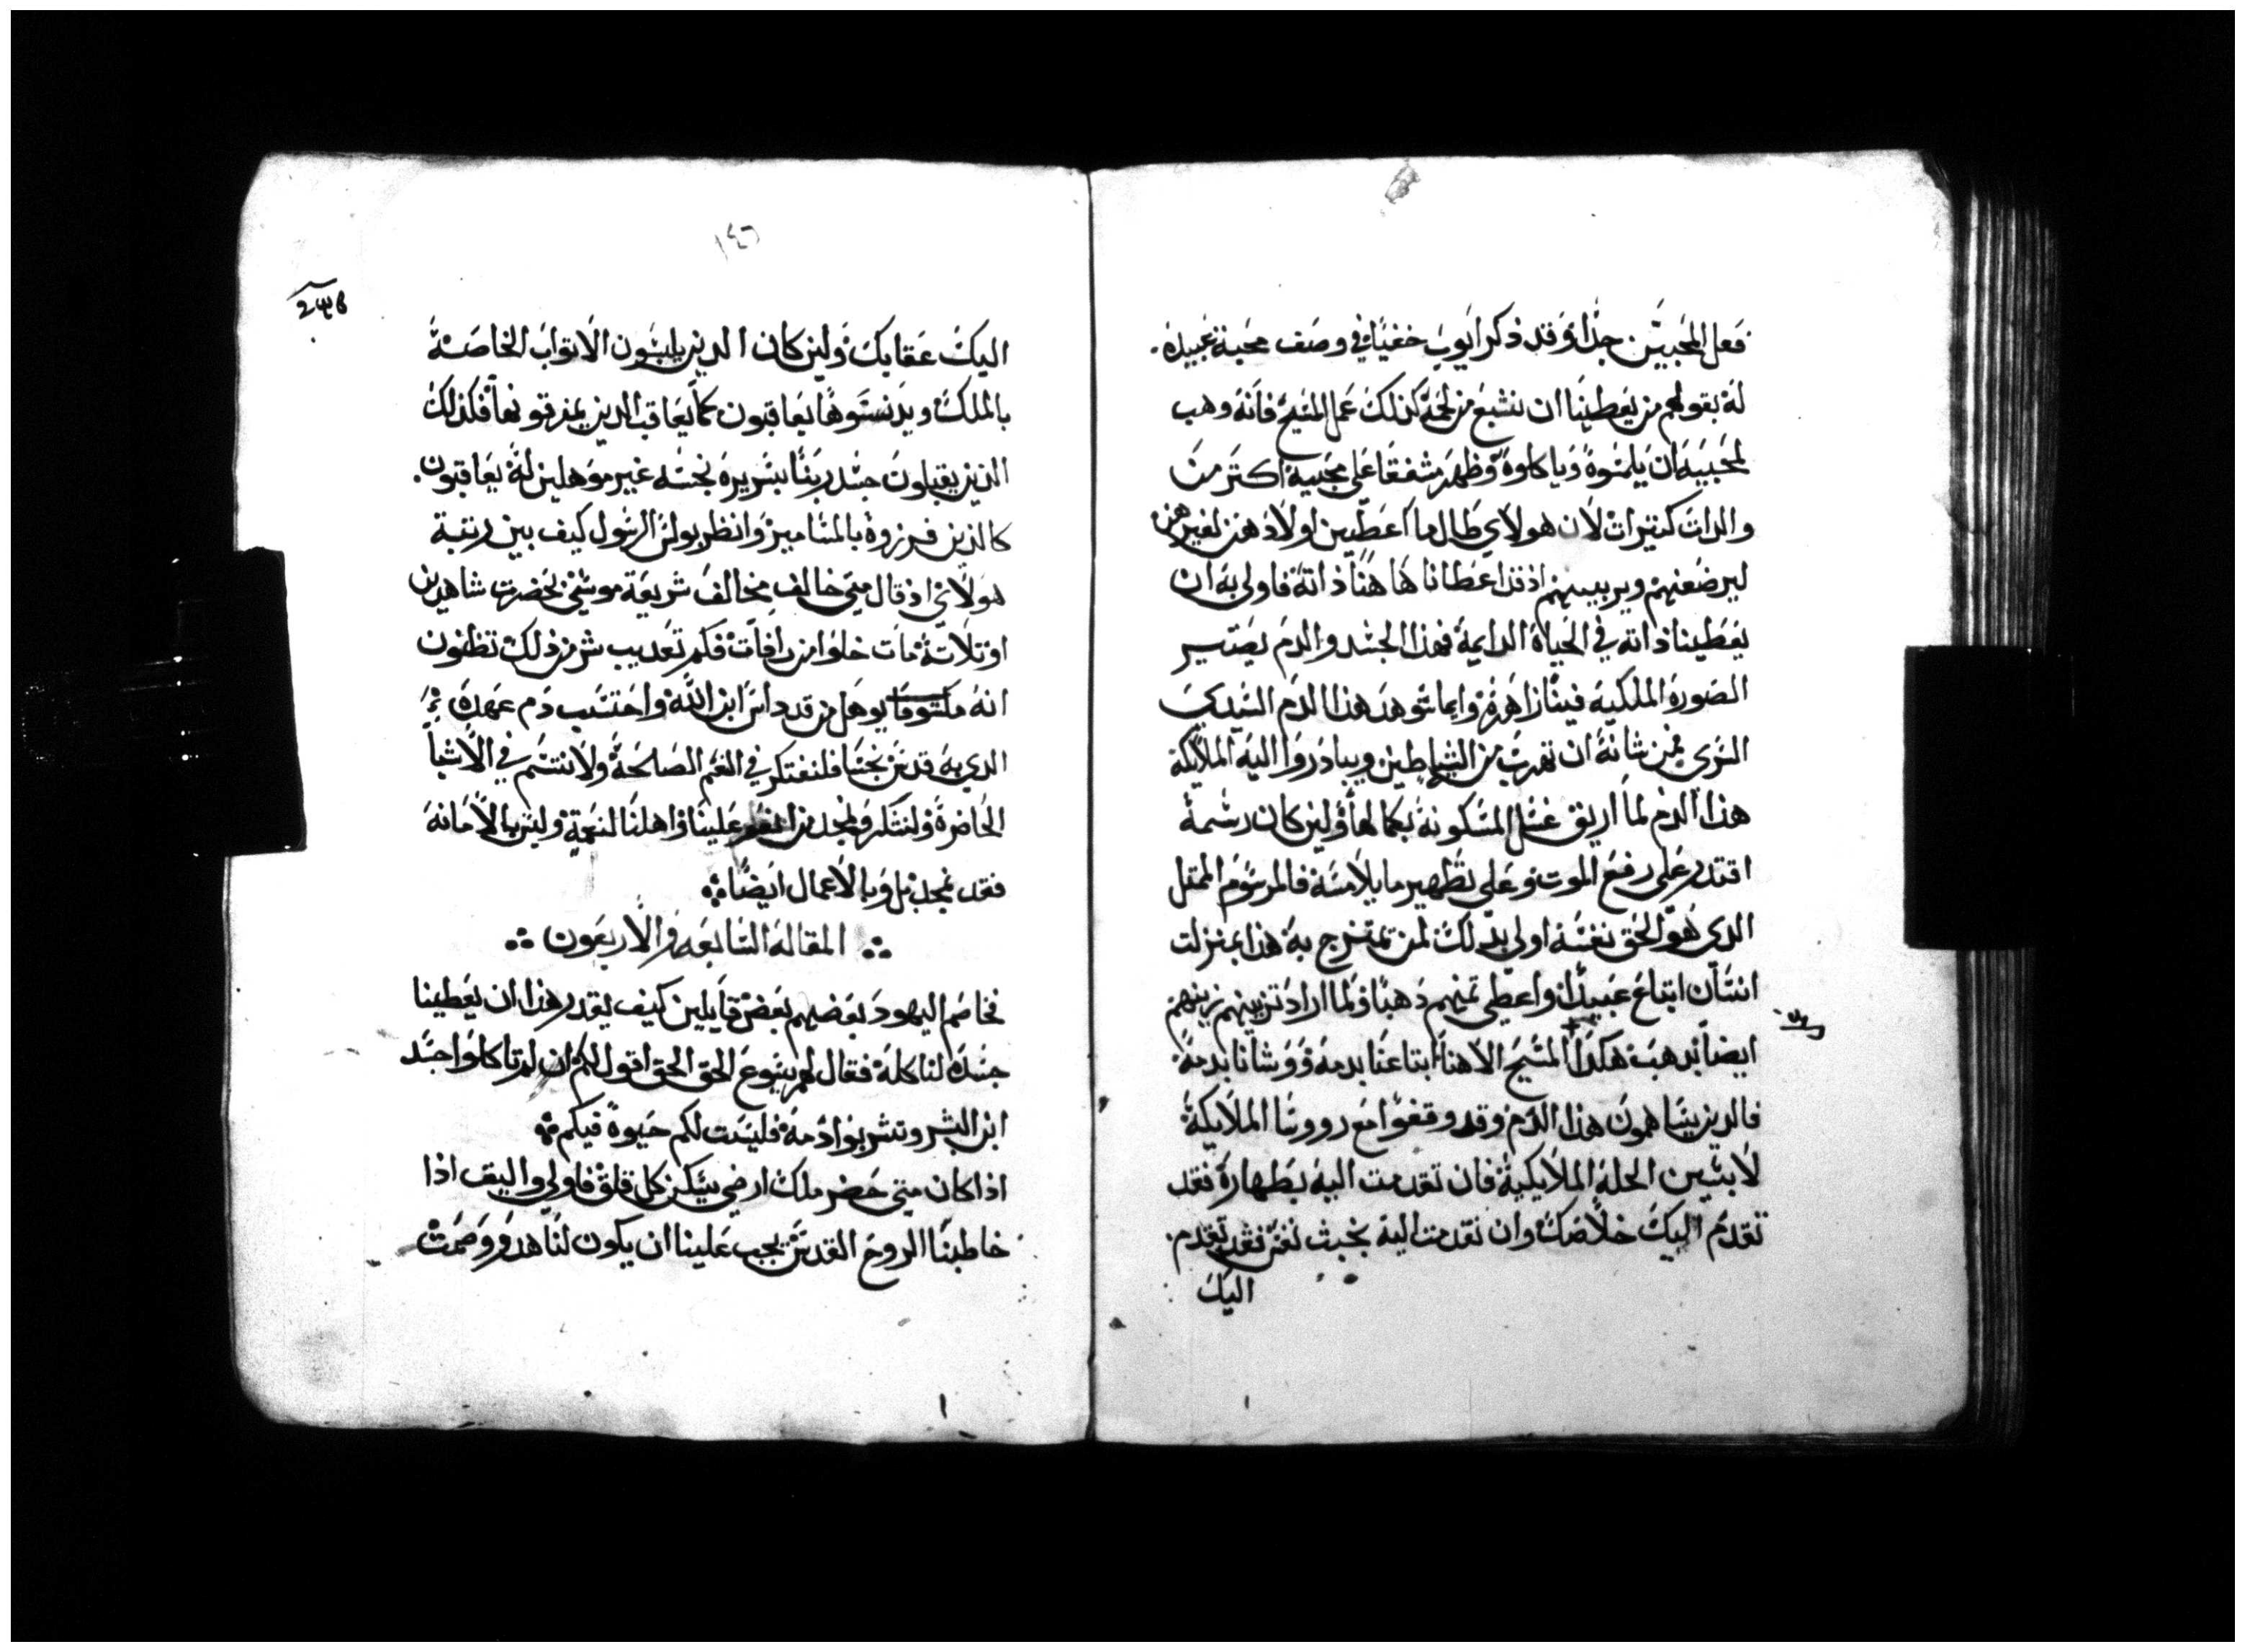 فعل المحبين جدًا وقد ذكر ايوب خفيًا في وصف محبة عبيده
له بقولهم من يعطينا ان نشبع من لحمه كذلك عمل المسيح فانه وهب
لمحبيه ان يلمسوه وياكلوه وظهر مشفقا على محبيه اكتر من
والدات كتيرات لان هولاي طال ما اعطين اولادهن لغيرهن
ليرضعنهم ويربينهم اذ قد اعطانا هاهنا ذاته فاولى به ان
يعطينا ذاته في الحياة الدايمة فهذا الجسد والدم يصير
الصورة الملكية فينا زاهرة وايما شوهد هذا الدم السيدي
السري فمن شانه ان تهرب من الشياطين ويبادروا اليه الملايكة
هذا الدم لما اريق غسل المسكونة بكمالها ولين كان رسمه
اقتدر على رفع الموت وعلى تطهير ما يلامسه فالمرسوم الممتل
الدي هو الحق نفسه اولى بدلك لمن تمتزج به هذا بمنزلت
انسان ابتاع عبيدًا واعطى تمنهم دهبًا ولما اراد تزيينهم زينهم
ايضًا بدهب هكدا المسيح الاهنا ابتاعنا بدمه ووشانا بدمه
فالدين يساهمون هذا الدم وقد وقفوا مع رووسا الملايكة
لابسين الحلة الملايكية فان تقدمت اليه بطهارة فقد
تقدم اليك خلاصك وان تقدمت اليه بخبث نفس فقد تقدم
اليك
١٤٦
اليك عقابك ولين كان الدين يلبسون الاتواب الخاصة
بالملك ويدنسوها يعاقبون كما يعاقب الدين يمزقونها فكذلك
الذين يقبلون جسد ربنا بسريره نجسه غير موهلين له يعاقبون
كالذين فرزوه بالمسامير وانظر بولس الرسول كيف بين رتبة
هولاي اذ قال متى خالف مخالف شريعة موسى بحضرت شاهدين
او تلاتة مات خلوا من رافات فكم تعديب شر من ذلك تظنون
انه ملتوفا يوهل من قد داس ابن الله واحتسب دم عهده
الدي به قدس نجسا فلنفتكر في النعم الصالحة ولا نتسم في الاشيا
الحاضرة ولنشكر ونمجد من انعم علينا واهلنا لنعمة ولين بالامانة
فقد نمجد بل وبالاعمال ايضًا
المقالة السابعه والاربعون
فخاصم اليهود بعضهم بعض قايلين كيف يقدر هذا ان يعطينا
جسده لناكله فقال لهم يسوع الحق الحق اقول لكم ان لم تاكلوا جسد
ابن البشر وتشربوا دمه فليست لكم حيوة فيكم
اذا كان متى حضر ملك ارضي يسكن كل قلق فاولى واليق اذا
خاطبنا الروح القدس يجب علينا ان يكون لنا هدو وصمت